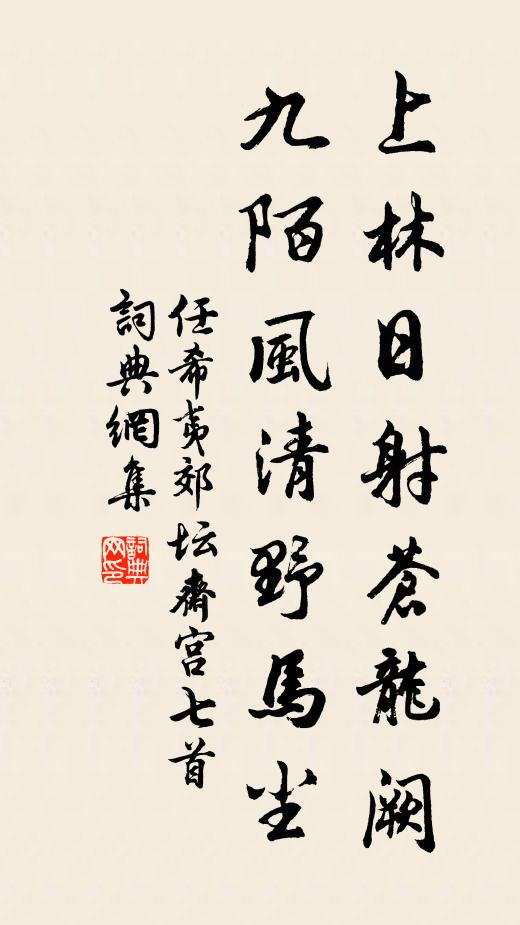 上林日射蒼龍闕
九陌風清野馬尘
任希夷郊坛齋宫七首
詞典網集
詞典网印